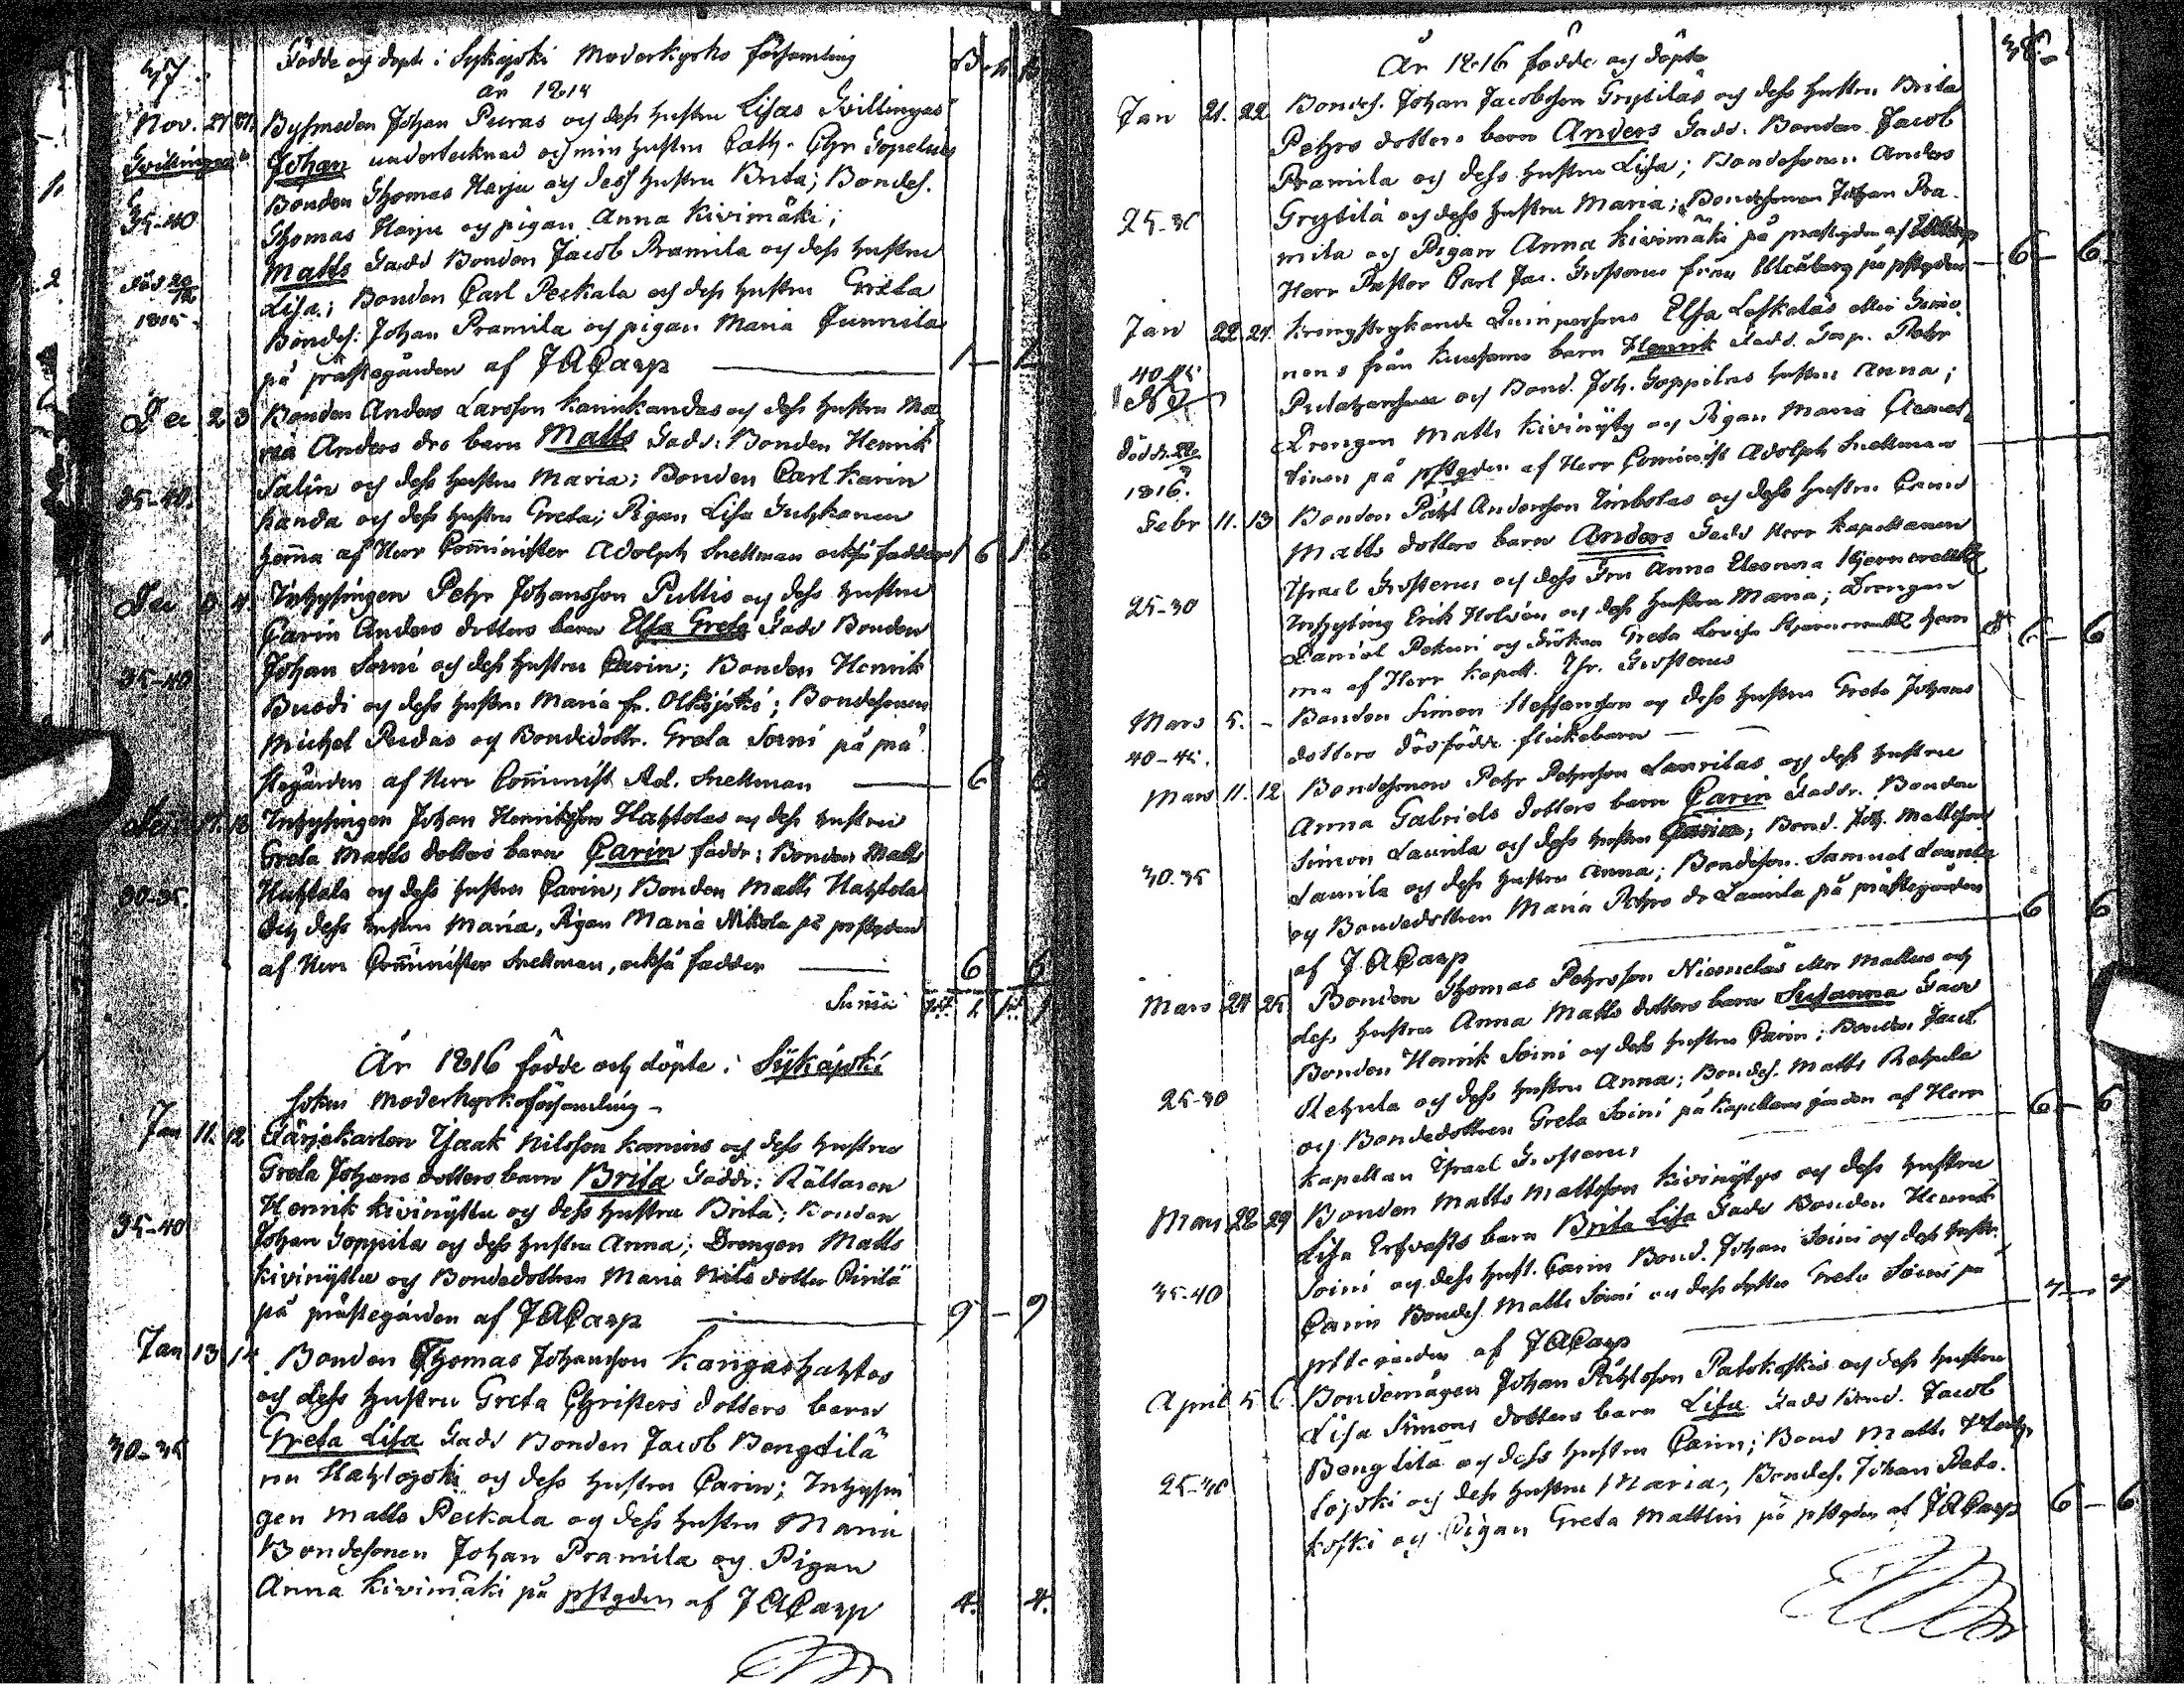 37.
Födde og döpte i Sijkajoki Moderkyrko församling
år 1815
Nov. 27 Bysmeden Johan Puras og dess hustru Lisas Tvillingar
Tvillingar Johan undertecknad och min hustru Cath. Chr. Topelius
Bonden Thomas Harju og dess hustru Brita; Bondes.
35-40 Thomas Harju og pigan Anna Kivimäki;
Matts Fadd Bonden Jacob Pramila og dess hustru
Lisa; Bonden Carl Peckala og dess hustru Greta
1815 Bondes. Johan Pramila og pigan Maria Junnila
på prästegården af J A Carp 1 — 1
Dec 2 3 Bonden Anders Larsson Karinkandas og dess hustru Ma
ria Anders drs barn Matts Fadd: Bonden Henrik
Salin og dess hustru Maria; Bonden Carl Karin
35-40. kanda og dess hustru Greta; Pigan Lisa
hemma af Herr Comminister Adolph Snellman också fadder 1 6 1 6
Dec 3 4 Inhysingen Pehr Johansson Pullis og dess hustru
Carin Anders dotters barn Elsa Greta Fadd Bonden
35-40 Johan Soini og dess hustru Carin; Bonden Henrik
og dess hustru Maria fr. Olkijoki; Bondesonen
Michel Pudas og Bondedottr. Greta Soini på prä
stegården af Herr Comminist Ad. Snellman — 6 6
Dec 17. 18 Inhysingen Johan Henriksson Hahtolas og dess hustru
Greta Matts dotters barn Carin faddr: Bonden Matts
30-35. Huhtala og dess hustru Carin; Bonden Matts Hahtola
och dess hustru Maria, Pigan Maria Nikola på prstgden
af Herr Comminister Snellman, också fadder — 6 6
Summa
År 1816 födde och döpte i Sijkajoki
Sokns Moderkyrkoförsamling -
Jan 11. 12 Färjekarlen Isaak Nilsson Kamins og dess hustru
Greta Johans dotters barn Brita Faddr: Rättaren
Henrik Kivinyttu og dess hustru Brita; Bonden
35-40 Johan Toppila og dess hustru Anna; Drengen Matts
Kivinyttu og Bondedottren Maria Nils dotter Pirilä
på prästegården af J A Carp — 9 — 9
Jan 13 14 Bonden Thomas Johansson Kangashahtos
og dess hustru Greta Christers dotters barn
30-35 Greta Lisa Fadd Bonden Jacob Bengtilä
og dess hustru Carin; Inhysin
gen Matts Peckala og dess hustru Maria
Bondesonen Johan Pramila og Pigan
Anna Kivimäki på pstgden af J A Carp 4. 4.
38.
År 1816 födde og döpte
Jan 21. 22 Bondes. Johan Jacobsson Grytiläs og dess hustru Brita
Pehrs dotters barn Anders Fadd. Bonden Jacob
Pramila og dess hustru Lisa; Bondesonen Anders
25-30 Grytilä og dess hustru Maria; Bondesonen Johan Pra-
mila og Pigan Anna Kivimäki på prästgden af
Herr Pastor Carl Jac. Frosterus från Uleåborg på pstgden 6 — 6
Jan 22 24. Kringstrykande Quinpersons Elsa
nens från Kuusamo barn Henrik Fadd.
40-45 og Bond. Joh. Toppilas hustru Anna;
Drengen Matts Kivinyty og Pigan Maria
Död d. på pstgden af Herr Cominist Adolph Snellman
1816.
Febr 11. 13 Bonden Påhl Andersson og dess hustru Carin
Matts dotters barn Anders Fadd Herr Kapellanen
Israel Frosterus og dess Fru Anna Eleonora
25-30 Inhysing Erik og dess hustru Maria; Drengen
Daniel Pekuri og Fröken Greta Lovisa hem
ma af Herr Kapell. Isr. Frosterus 6 — 6
Mars 5. - Bonden Simon Steffansson og dess hustru Greta Johans
40-45. dotters dödfödde flickebarn —
Mars 11. 12 Bondesonen Pehr Pehrsson Laurilas og dess hustru
Anna Gabriels dotters barn Carin Faddr. Bonden
Simon Laurila og dess hustru Carin; Bond. Joh. Mattsson
30.35 Laurila og dess hustru Anna; Bondeson. Samuel Laurila
og Bondedottren Maria Pehrs dr Laurila på prästegården
af J A Carp 6 6
Mars 24 25 Bonden Thomas Pehrsson Niemeläs eller Mattus och
dess hustru Anna Matts dotters barn Susanna Fadd
Bonden Henrik Soini og dess hustru Carin; Bonden Jacob
25-30 Rehula og dess hustru Anna; Bondes. Matts Rehula
og Bondedottren Greta Soini på Kapellans gården af Herr
Kapellan Israel Frosterus 6 — 6
Mars 28 29 Bonden Matts Mattsson Kivinytys og dess hustru
Lisa barn Brita Lisa Fadd Bonden Henrik
Soini og dess hust. Carin Bond. Johan Soini og dess hustr.
35-40 Carin Bondes. Matts Soini og dess syster Greta Soini på
af J A Carp 7 — 7
April 5 6. Bondemågen Johan Påhlsson Patokoskis og dess hustru
Lisa Simons dotters barn Lisa Fadd Bond. Jacob
Bengtilä og dess hustru Carin; Bond Matts
25-30 tojoki og dess hustru Maria, Bondes. Johan Pato-
koski og Pigan Greta Mattlin på pstgden af J A Carp 6 — 6